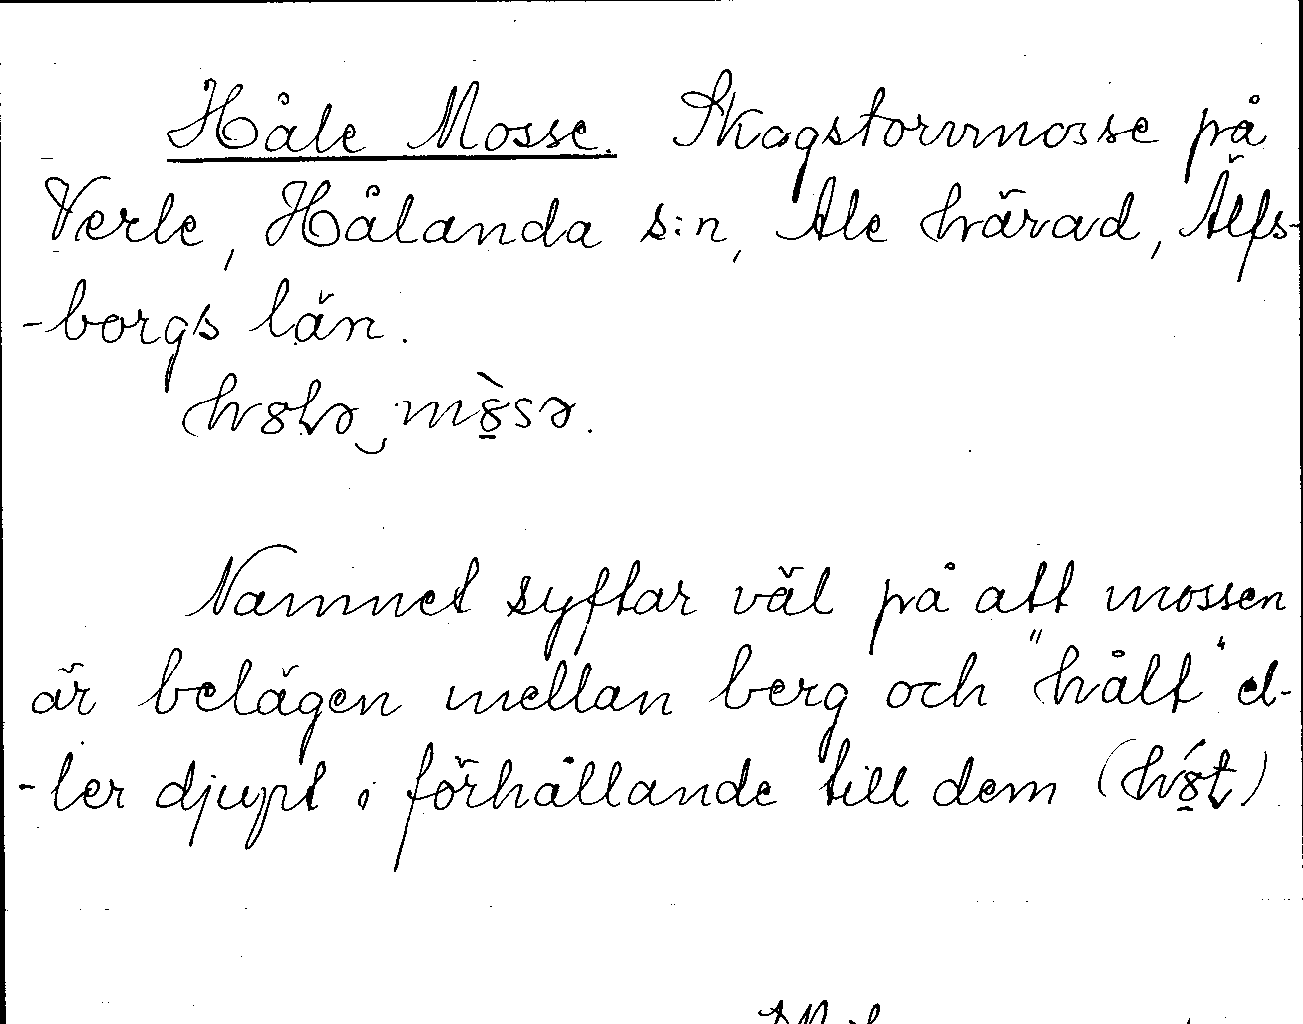 Håle Mosse. Skogstorvmosse på
Verle, Hålanda s:n, Ale härad, Älfs-
-borgs län.
Namnet syftar väl på att mossen
är belägen mellan berg och "hålt" el-
-ler djupt i förhållande till dem